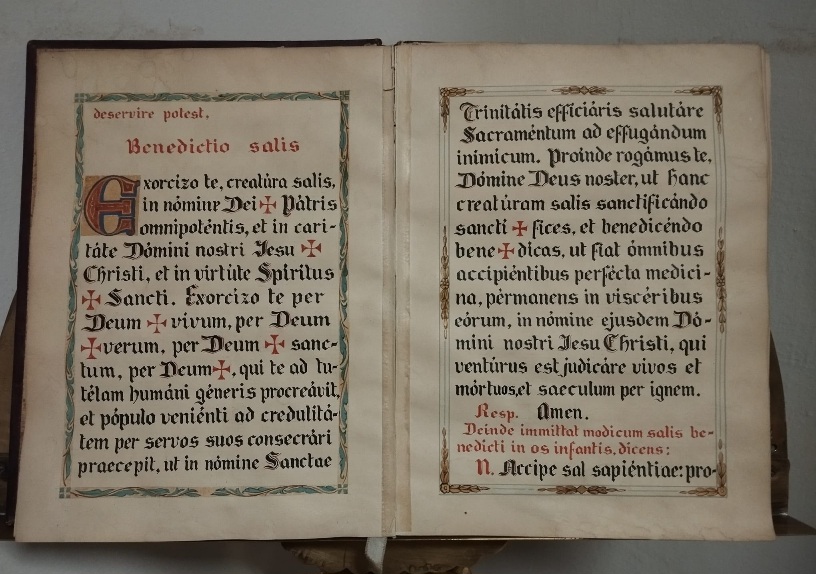 deservire potest.
Benedictio salis
Exorcizo te, creatúra salis,
in nómine Dei ✠ Pátris
omnipoténtis, et in cari-
táte Dómini nostri Jesu ✠
Christi, et in virtúte Spíritus
✠ Sancti. Exorcizo te per
Deum ✠ vivum, per Deum
✠ verum, per Deum ✠ sanc-
tum, per Deum ✠, qui te ad tu-
télam humáni géneris procreávit,
et pópulo veniénti ad credulitá-
tem per servos suos consecrári
praecepit, ut in nómine Sanctae
Trinitátis efficiáris salutáre
Sacraméntum ad effugándum
inimícum. Proinde rogámus te,
Dómine Deus noster, ut hanc
creatúram salis sanctificándo
sancti ✠ fices, et benedicéndo
bene ✠ dicas, ut fiat ómnibus
accipiéntibus perfécta medici-
na, pérmanens in viscéribus
eórum, in nómine ejusdem Dó-
mini nostri Jesu Christi, qui
ventúrus est judicáre vivos et
mórtuos, et saeculum per ignem.
Resp. Amen.
Deinde immittat modicum salis be-
nedicti in os infantis, dicens:
N. Accipe sal sapiéntiae: pro-